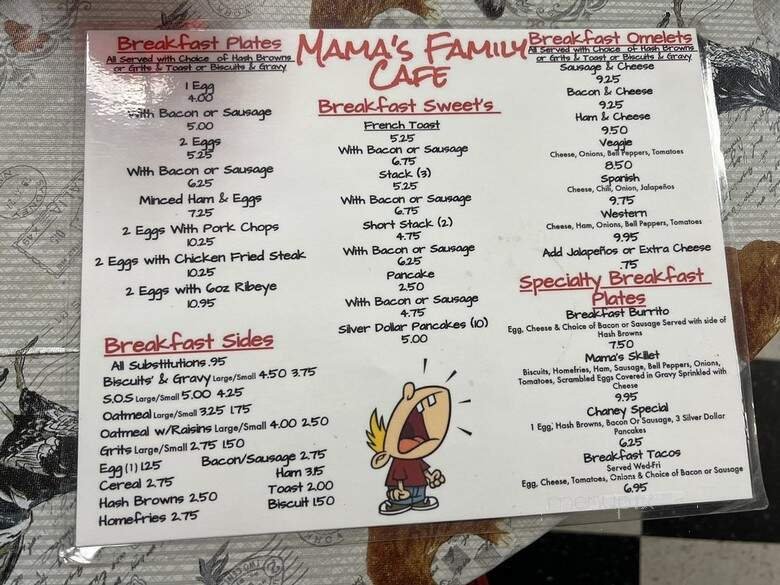 Mama's Family
Cafe
Breakfast Plates
All Served with Choice of Hash Browns
or Grits & Toast or Biscuits & Gravy
1 Egg
4.00
With Bacon or Sausage
5.00
2 Eggs
5.25
With Bacon or Sausage
6.25
Minced Ham & Eggs
7.25
2 Eggs With Pork Chops
10.25
2 Eggs with Chicken Fried Steak
10.25
2 Eggs with 6oz Ribeye
10.95
Breakfast Sides
All Substitutions .95
Biscuits' & Gravy Large/Small 4.50 3.75
S.O.S Large/Small 5.00 4.25
Oatmeal Large/Small 3.25 1.75
Oatmeal w/Raisins Large/Small 4.00 2.50
Grits Large/Small 2.75 1.50
Egg (1) 1.25
Cereal 2.75
Hash Browns 2.50
Homefries 2.75
Bacon/Sausage 2.75
Ham 3.15
Toast 2.00
Biscuit 1.50
Breakfast Sweet's
French Toast
5.25
With Bacon or Sausage
6.75
Stack (3)
5.25
With Bacon or Sausage
6.75
Short Stack (2)
4.75
With Bacon or Sausage
6.25
Pancake
2.50
With Bacon or Sausage
4.75
Silver Dollar Pancakes (10)
5.00
Breakfast Omelets
All Served with Choice of Hash Browns
or Grits & Toast or Biscuits & Gravy
Sausage & Cheese
9.25
Bacon & Cheese
9.25
Ham & Cheese
9.50
Veggie
Cheese, Onions, Bell Peppers, Tomatoes
8.50
Spanish
Cheese, Chili, Onion, Jalapeños
9.75
Western
Cheese, Ham, Onions, Bell Peppers, Tomatoes
9.95
Add Jalapeños or Extra Cheese
.75
Specialty Breakfast
Plates
Breakfast Burrito
Egg, Cheese & Choice of Bacon or Sausage Served with side of
Hash Browns
7.50
Mama's Skillet
Biscuits, Homefries, Ham, Sausage, Bell Peppers, Onions,
Tomatoes, Scrambled Eggs Covered in Gravy Sprinkled with
Cheese
9.95
Chaney Special
1 Egg, Hash Browns, Bacon Or Sausage, 3 Silver Dollar
Pancakes
6.25
Breakfast Tacos
Served Wed-Fri
Egg, Cheese, Tomatoes, Onions & Choice of Bacon or Sausage
6.95